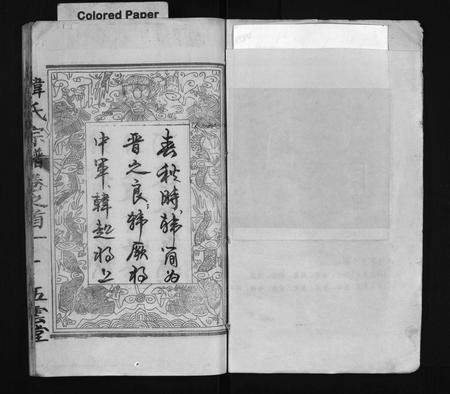 Colored Paper
春秋時韓簡為
晉之良韓厥将
中軍韓起将上
韓氏宗譜卷之首
五雲堂